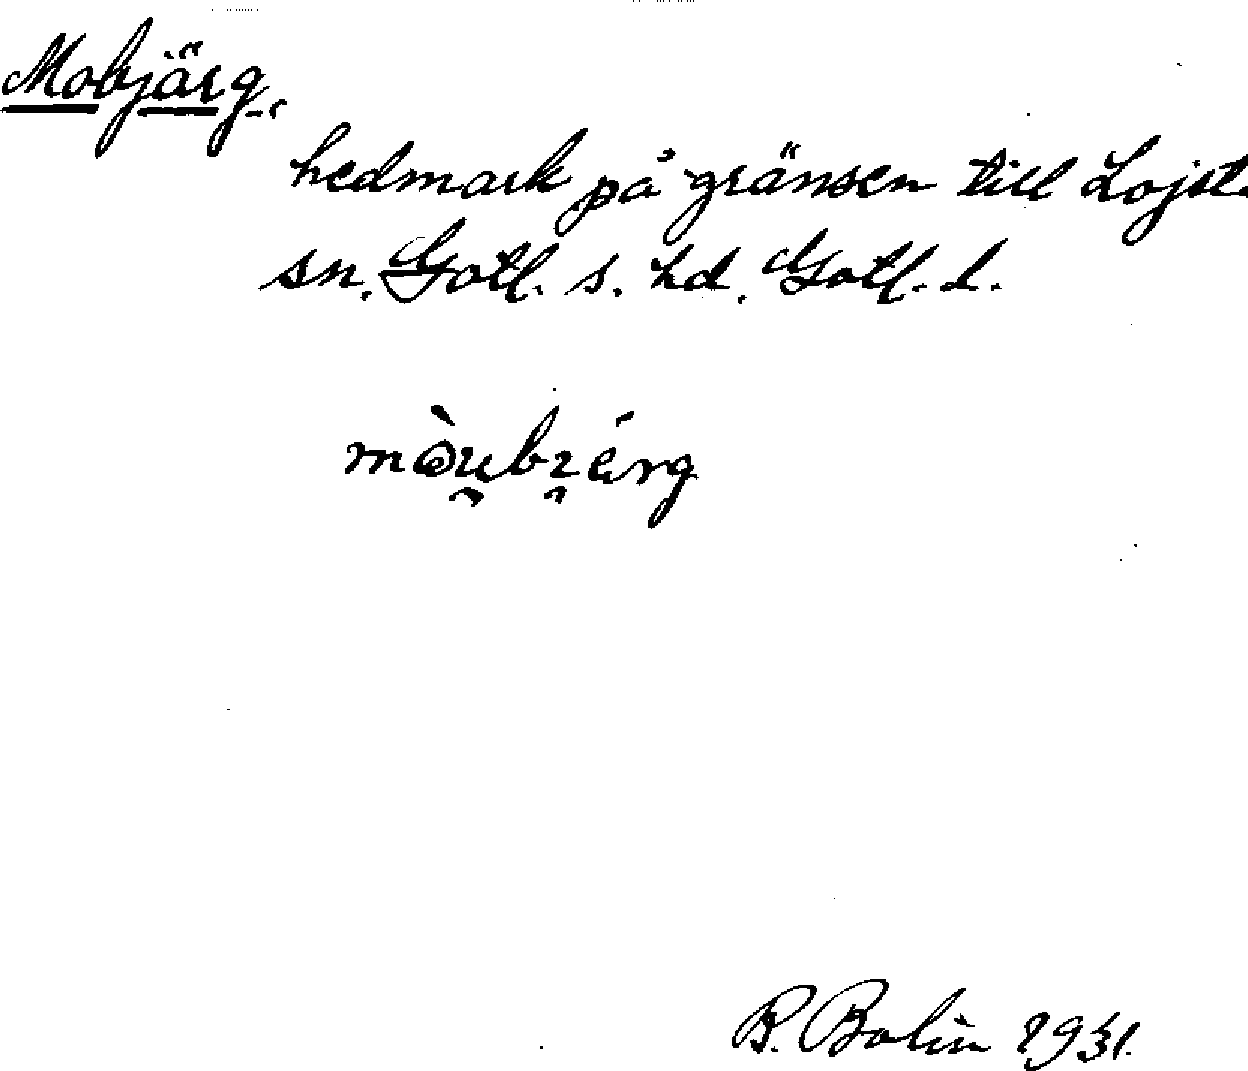 Mobjärg.
hedmark på gränsen till Lojsta
sn. Gotl. s. hd. Gotl. l.
B. Bolin 1931.